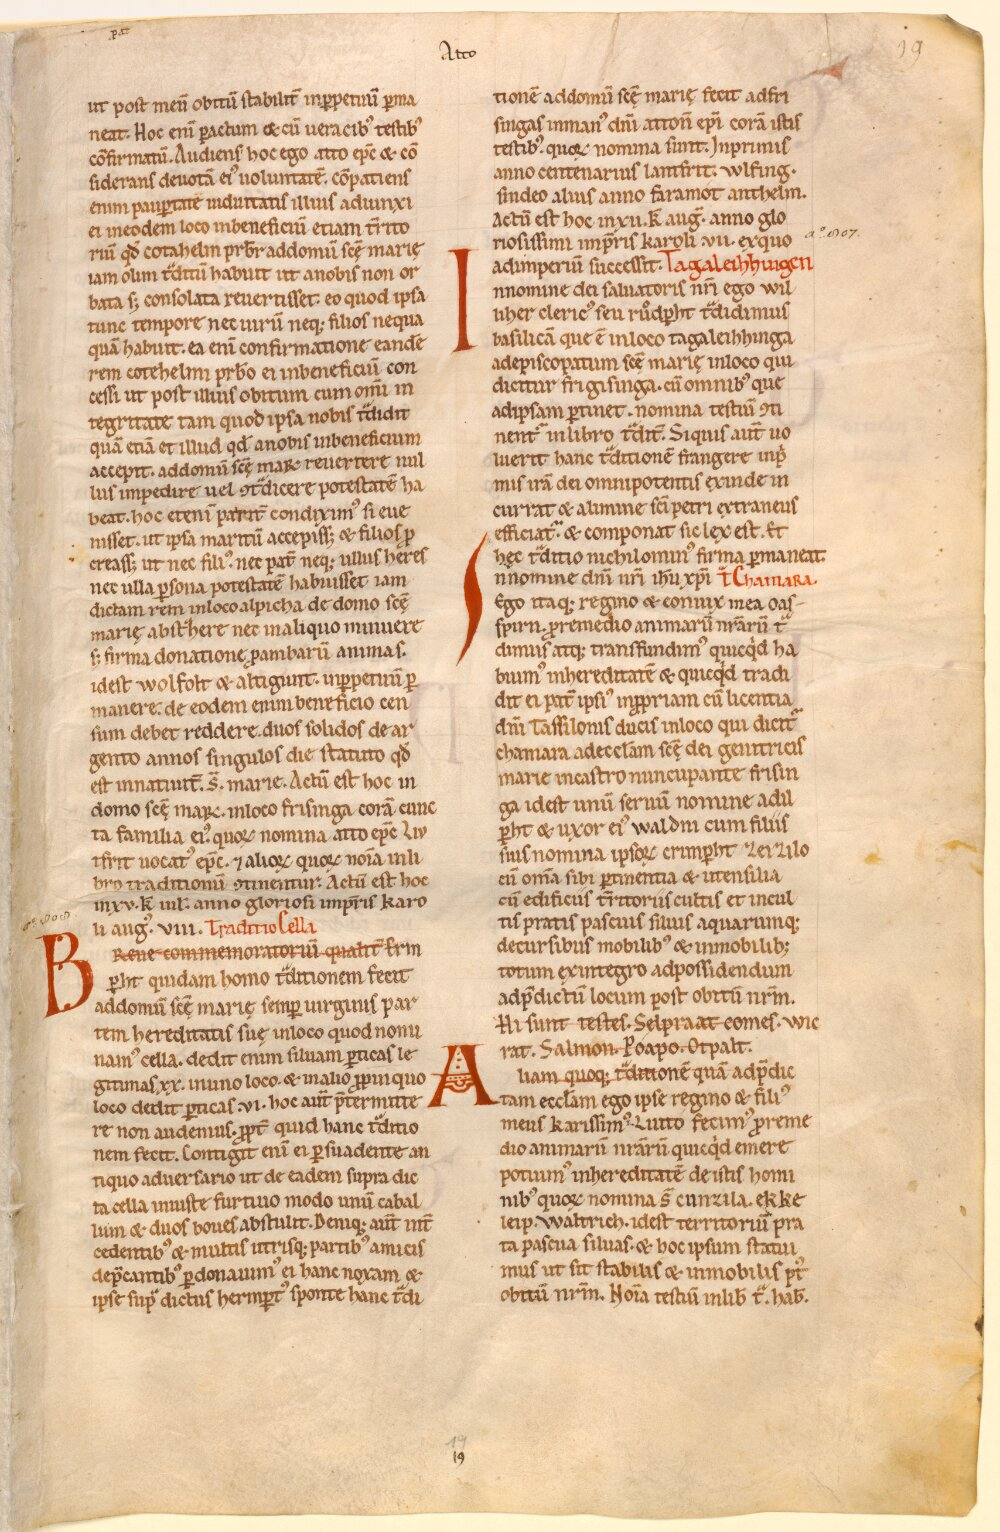 Atto
19
ut post meū obitū stabilit̄ inp̱petuū p̱ma
neat. Hoc eni p̱actum & cū veracib᷒ testib᷒
cōfirmatū. Audiens hoc ego atto ep̄c & cō
siderans deuotā ei᷒ uoluntatē. cōpatiens
enim paup̱tate uiduitatis illius adiunxi
ei ineodem loco inbeneficiū etiam t̄rito
riū qd̄ cotahelm prb̄r addomū scę̄ marię
iam olim t̄ditū habuit ut anobis non or
bata s; consolata reuertisset. eo quod ipsa
tunc tempore nec uirū neq; filios nequa
quā habuit. ea enī confirmatione eandē
rem cotehelmi prb̄o ei inbeneficiū con
cessi ut post illius obitum cum om̄i in
tegritate tam quod ipsa nobis t̄didit
quā etiā et illud qd̄ anobis inbeneficium
accepit. addomū scę̄ marꝶ reuertere nul
lus impedire uel ꝯt̄dicere potestatē ha
beat. hoc etenī parit̄ condixim᷒ si eue
nisset. ut ipsa maritū accepiss; & filios p̱
creass; ut nec fili᷒. nec pat̄ neq; ullius heres
nec ulla p̱sona potestatē habuisset iam
dictam rem inloco alpicha de domo scę̄
marię abst̄here nec inaliquo minuere
s; firma donatione ꝓambarū animas.
idest wolfolt & altigunt. inp̱petuū p̱
manere. de eodem enim beneficio cen
sum debet reddere duos solidos de ar
gento annos singulos die statuto qd̄
est innatiuit̄. S̄. marie. Actū est hoc in
domo scę̄ marꝶ. inloco frisinga corā cunc
ta familia ei᷒. quoꝶ nomina atto ep̄c Liu
tfrit uocat᷒ ep̄c. ⁊ alioꝶ quoꝶ noīa inli
bro traditionū ꝯtinentur. Actū est hoc
inxv. K̄ iul. anno gloriosi imp̱ris karo
li aug᷒. viii. Traditio Cella
Breue commemoratoriū qualit̄ Erin
p̱ht quidam homo t̄ditionem fecit
addomū scę̄ marię semp̱ uirginis par
tem hereditatis suę inloco quod nomi
nam᷒ cella. dedit enim siluam p̱ticas le
gitimas xx. inuno loco. & inalio ꝓpinquo
loco dedit p̱ticas .vi. hoc aut̄ p̄termitte
re non audemus. ꝓpt̄ quid hanc t̄ditio
nem fecit. Contigit enī ei p̱suadente an
tiquo aduersario ut de eadem supra dic
ta cella iniuste furtiuo modo unū cabal
lum & duos boues abstulit. Deniq; aut̄ int̄
cedentib᷒ & multis utrisq; partib᷒ amicis
dep̄cantib᷒ p̱donauim᷒ ei hanc noxam &
ipse sup̄ dictus herinp̱t᷒ sponte hanc t̄di
tionē addomū scę̄ marię fecit adfri
singas inman᷒ dn̄i attoni ep̄i corā istis
testib᷒. quoꝶ nomina sunt. Inprimis
anno centenarius lantfrit. wlfing.
sindeo alius anno faramot anthelm.
Actū est hoc inxu. K̄ aug̃. anno glo
riosissimi imp̱ris karoli .vii. exquo
adimperiū successit. Tagaleihhingen
Innomine dei saluatoris nr̄i ego wil
liher cleric᷒ seu růdp̱ht t̄didimus
basilicā que ē inloco tagaleihhinga
adepiscopatum scę̄ marię inloco qui
dicitur frigisinga. cū omnib᷒ que
adipsam p̱tinet. nomina testiū ꝯti
nent᷑ inlibro t̄dit̄. Siquis aut̄ uo
luerit hanc t̄ditionē frangere inp̱
mis irā dei omnipotentis exinde in
currat & alimine sc̄i petri extraneus
efficiat᷑. & componat sic lex est. Et
hęc t̄ditio nichilomin᷒ firma p̱maneat.
Innomine dn̄i nr̄i ih̄u xp̄i T̄ Chamara.
Ego itaq; regino & coniux mea oas-
spirn. ꝓremedio animarū nr̄arū t̄
dimus atq; transfundim᷒ quicq̇d ha
buim᷒ inhereditatē & quicq̇d tradi
dit ei pat̄ ipsi᷒ inꝓpriam cū licentia
dn̄i Tassilonis ducis inloco qui dicit᷑
chamara adeccl̄am scę̄ dei genitricis
marie incastro nuncupante frisin
ga idest unū seruū nomine adil
p̱ht & uxor ei᷒ waldni cum filiis
suis nomina ipsoꝶ crimp̱ht Zeizilo
cū om̄ia sibi p̱tinentia & utensilia
cū edificiis t̄ritoriis cultis et incul
tis pratis pascuis siluis aquarumq;
decursibus mobilib᷒ & inmobilib;
totum exintegro adpossidendum
adp̄dictū locum post obitū nr̄m.
Hi sunt testes. Selpraat comes. wic
rat. Salmon. Poapo. Otpalt.
Aliam quoq; t̄ditionē quā adp̄dic
tam eccl̄am ego ipse regino & fili᷒
meus karissim᷒. Liutto fecim᷒ ꝓreme
dio animarū nr̄arū quicq̇d emere
potuim᷒ inhereditatē de istis homi
nib᷒ quoꝶ nomina S̄ cunzila. ekke
leip. waltrich. idest territoriū pra
ta pascua siluas. & hoc ipsum statui
mus ut sit stabilis & inmobilis p᷒t
obitū nr̄m. Noīa testiū inlib̄ t̄. hab̄.
aº. 807.
19
19